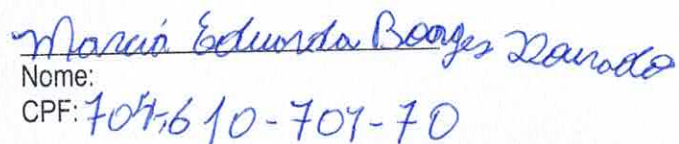 Marcia Eduarda Borges Dourado
Nome:
CPF: 704.610-701-70